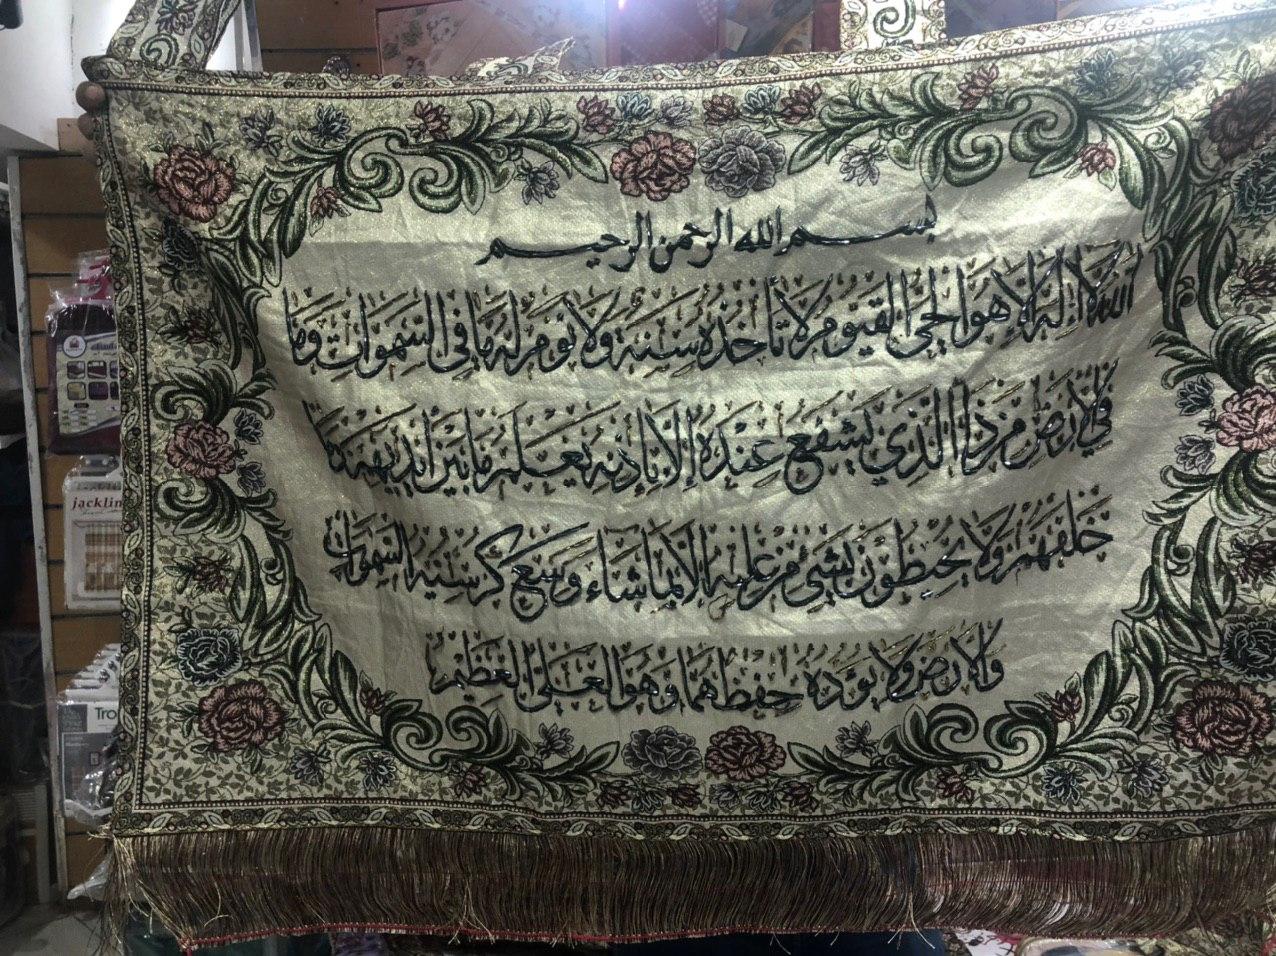 بسم الله الرحمن الرحيم
الله لا اله الا هو الحي القيوم لا تاخذه سنة ولا نوم له ما في السموات وما
في الارض من ذا الذي يشفع عنده الا باذنه يعلم ما بين ايديهم وما
خلفهم ولا يحيطون بشئ من علمه الا بما شاء وسع كرسيه السموات
والارض ولا يوده حفظهما وهو العلي العظيم
jacklin
Tro